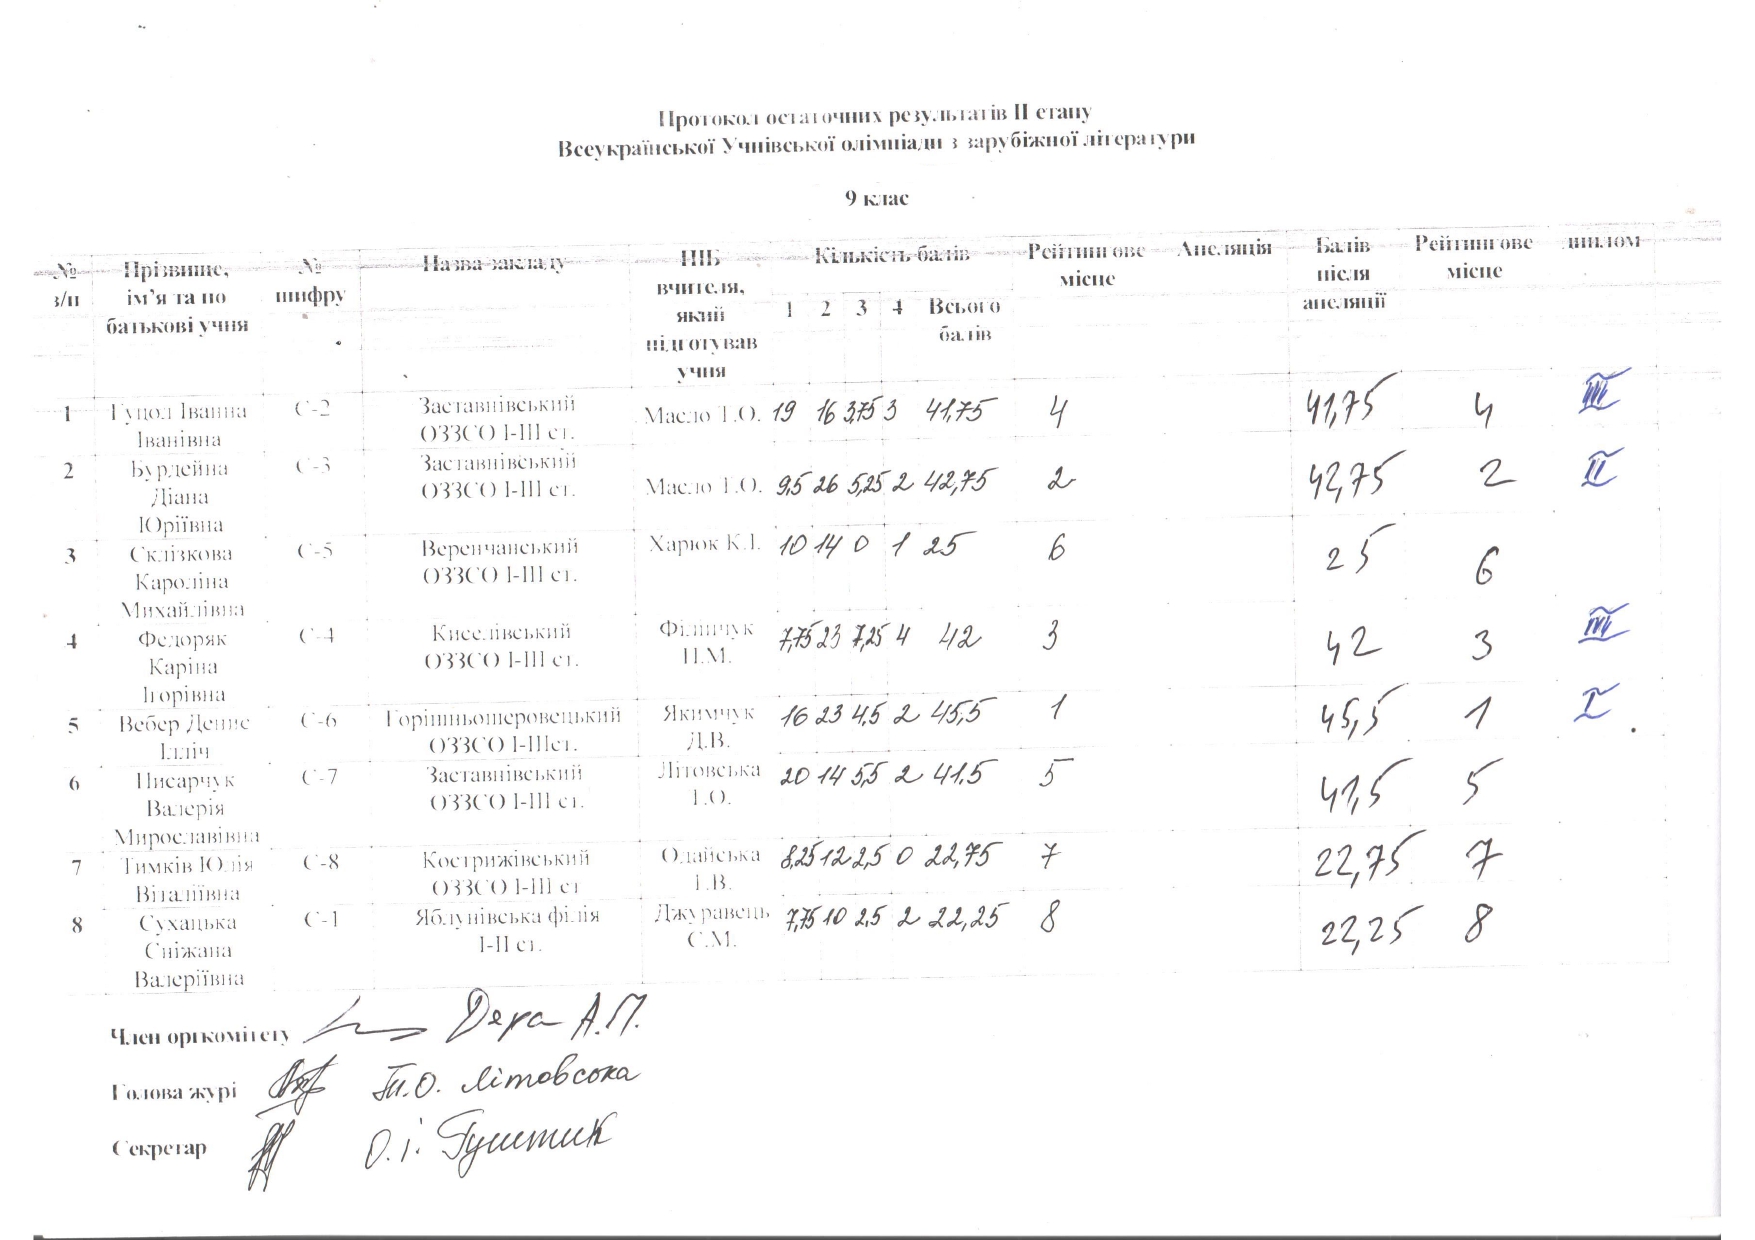 Протокол остаточних результатів ІІ етапу
Всеукраїнської Учнівської олімпіади з зарубіжної літератури
9 клас
№ з/п Прізвище, ім'я та по батькові учня № шифру Назва закладу ПІБ вчителя, який підготував учня Кількість балів Рейтингове місце Апеляція Балів після апеляції Рейтингове місце диплом
1 2 3 4 Всього балів
1 Гуцол Іванна Іванівна С-2 Заставнівський ОЗЗСО І-ІІІ ст. Масло Т.О. 19 16 3,75 3 41,75 4 41,75 4 ІІІ
2 Бурдейна Діана Юріївна С-3 Заставнівський ОЗЗСО І-ІІІ ст. Масло Т.О. 9,5 26 5,25 2 42,75 2 42,75 2 ІІ
3 Склізкова Кароліна Михайлівна С-5 Веренчанський ОЗЗСО І-ІІІ ст. Харюк К.І. 10 14 0 1 25 6 25 6
4 Федоряк Каріна Ігорівна С-4 Киселівський ОЗЗСО І-ІІІ ст. Філіпчук П.М. 7,75 23 7,25 4 42 3 42 3 ІІІ
5 Вебер Денис Ілліч С-6 Горішньошеровецький ОЗЗСО І-ІІІст. Якимчук Д.В. 16 23 4,5 2 45,5 1 45,5 1 І
6 Писарчук Валерія Мирославівна С-7 Заставнівський ОЗЗСО І-ІІІ ст. Літовська Т.О. 20 14 5,5 2 41,5 5 41,5 5
7 Тимків Юлія Віталіївна С-8 Кострижівський ОЗЗСО І-ІІІ ст Олайська Г.В. 8,25 12 2,5 0 22,75 7 22,75 7
8 Сухацька Сніжана Валеріївна С-1 Яблунівська філія І-ІІ ст. Джуравець С.М. 7,75 10 2,5 2 22,25 8 22,25 8
Член оргкомітету Дера А.П.
Голова журі Т.О. Літовська
Секретар О.І.